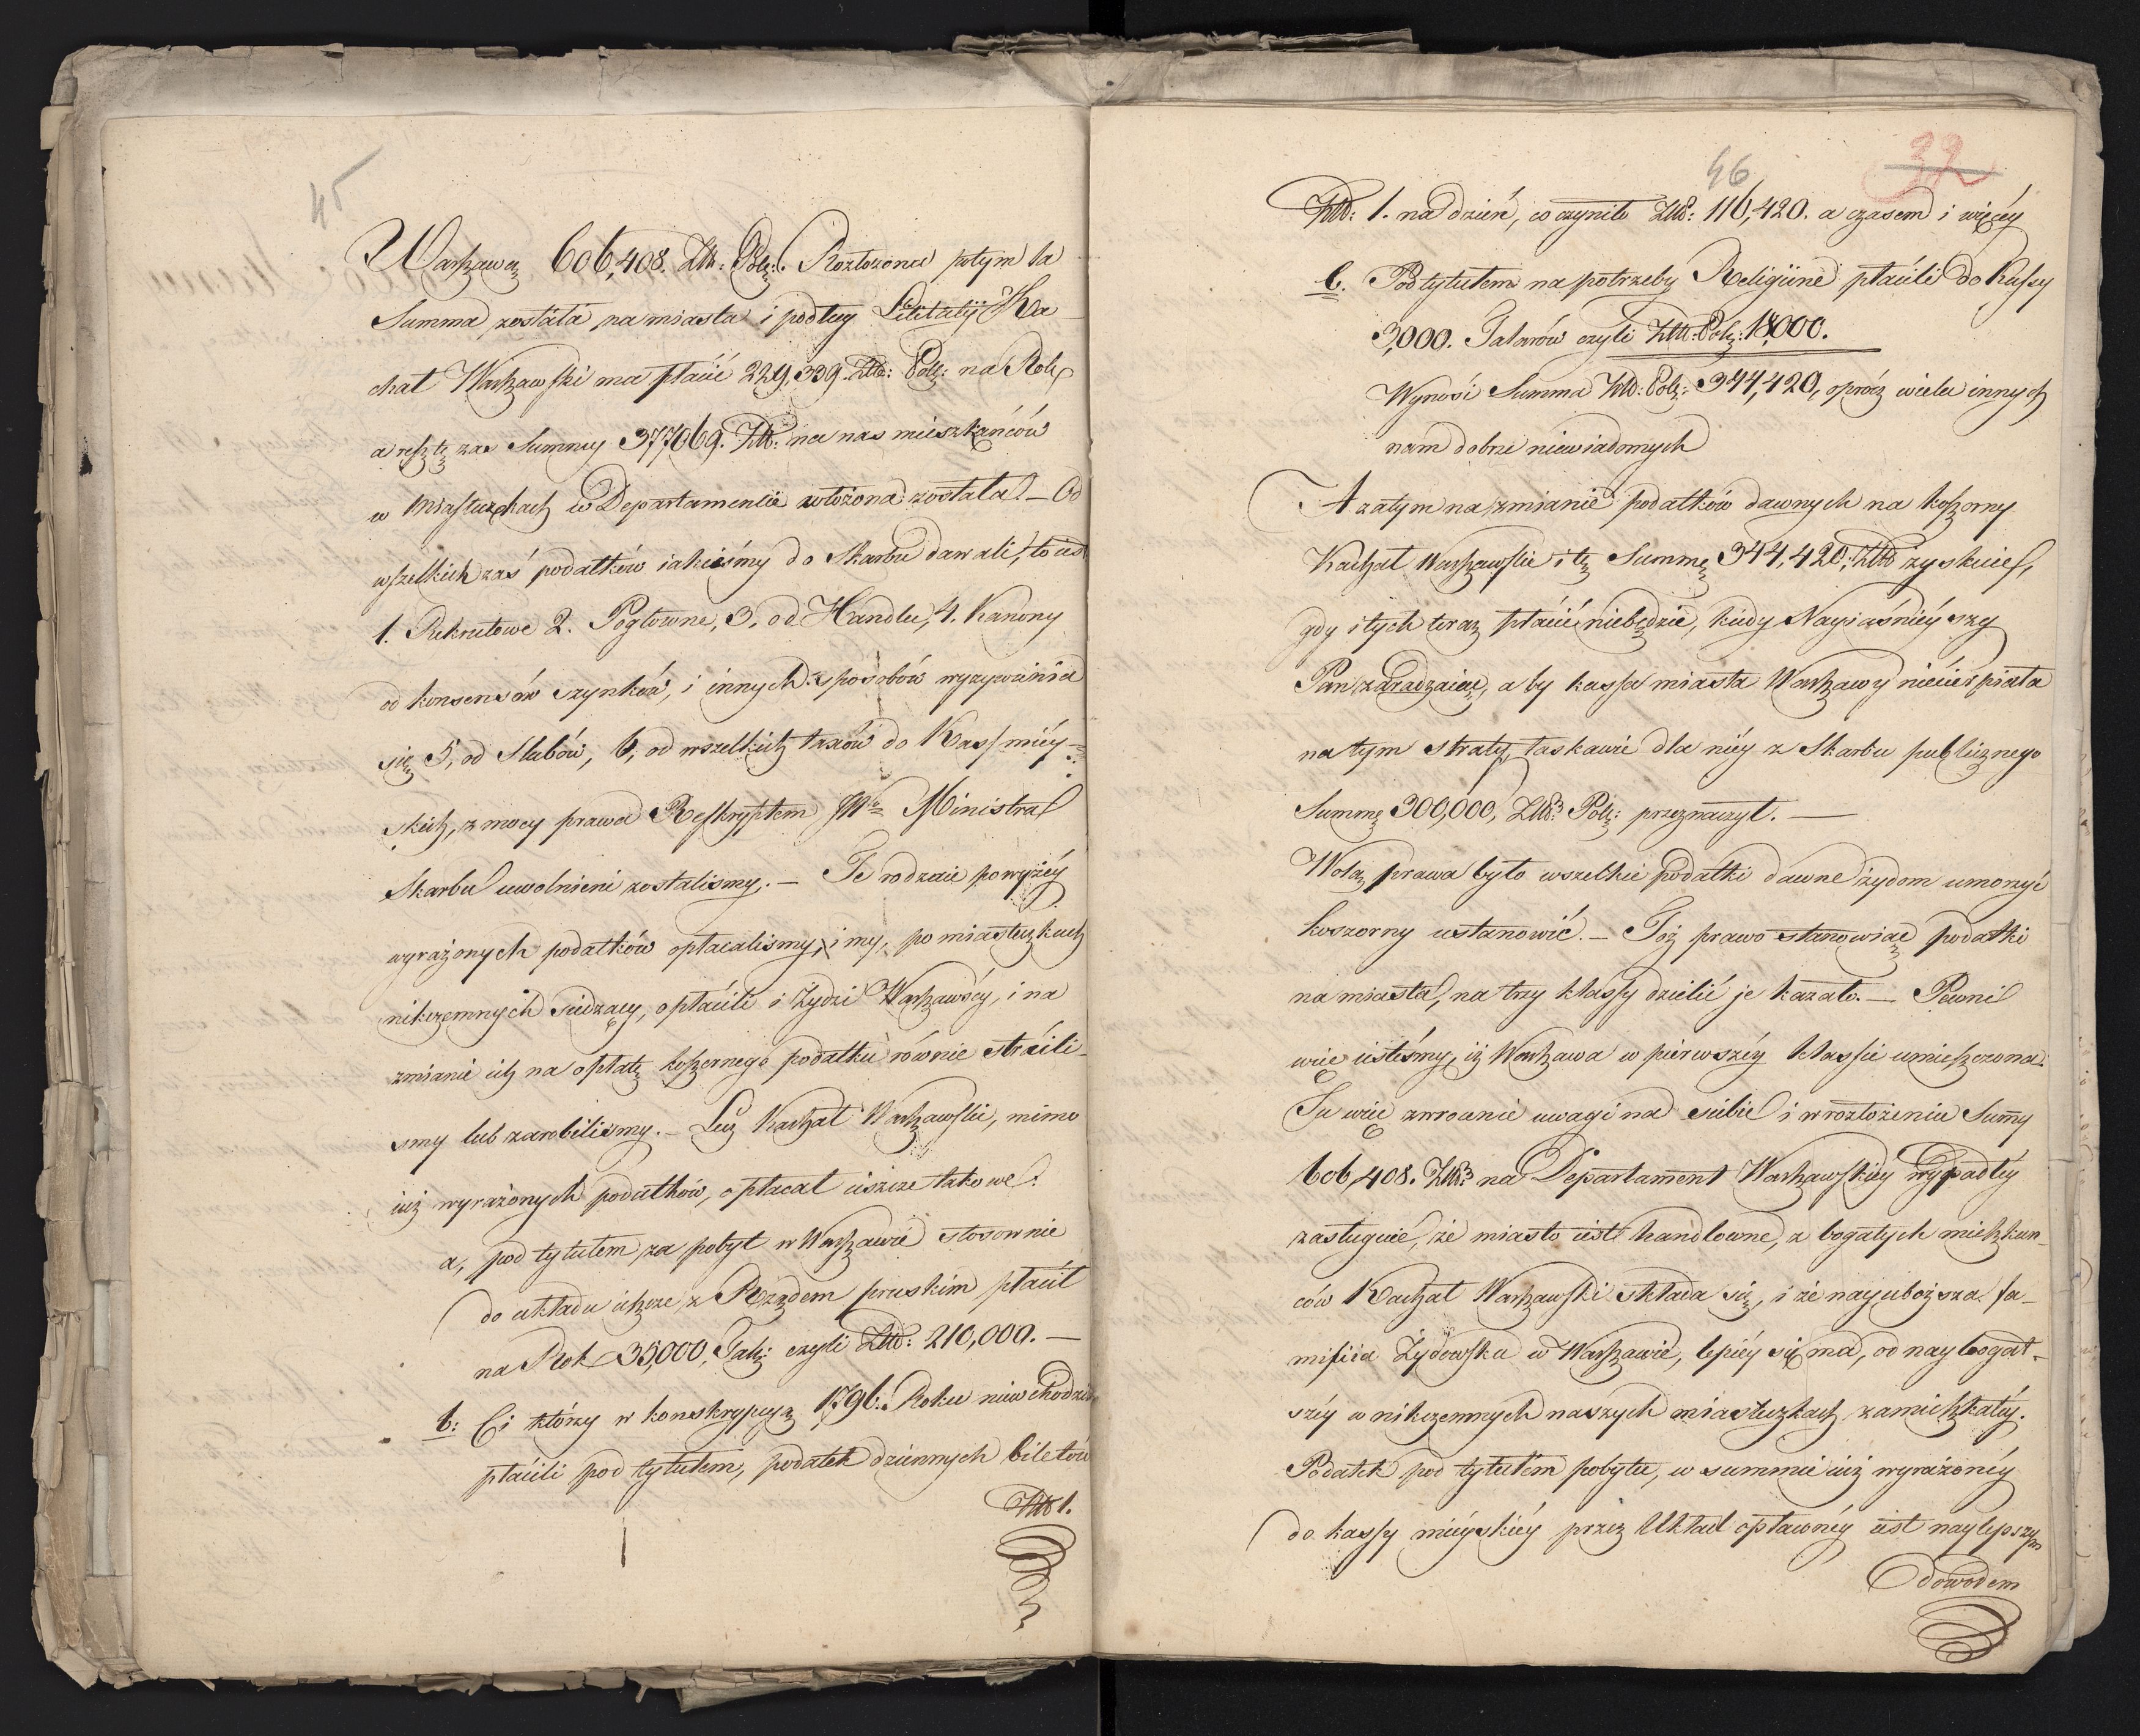 45
Warszawą 606,408. Złł: Pols: Rozłożona potym ta
Summa została na miasta i podług Licitatÿ Ka
chał Warszawski ma płacić 229,339. Złł: Pols: na Rok,
a resztę zaś Summy 377069. Złł: na nas mieszkańców
w Miasteczkach w Departamencie włożona została. — Od
wszelkich zaś podatków iakieśmy do Skarbu dawali, to iest
1. Rekrutowe 2. Pogłowne, 3, od Handlu, 4. Kanony
od konsensów szynków, i innych sposobów wyżywienia
się 5, od Slubów, 6, od wszelkich taxów do Kass miey-
skich, z mocy prawa Reskryptem JWo Ministra
Skarbu uwolnieni zostalismy. — Te rodzaie powyżey
wyrażonych podatków opłacalismy, i my, po miasteczkach
nikczemnych siedzący, opłacili i Żydzi Warszawscy, i na
zmianie ich na opłatę koszernego podatku równie stracili-
smy lub zarobilismy. — Lecz Kachał Warszawski, mimo
iuż wyrażonych podatków, opłacał ieszcze takowe:
a, pod tytułem za pobyt w Warszawie stosownie
do układu ieszcze z Rządem pruskim płacił
na Rok 35,000, Tal: czyli Złł: 210,000. —
b: Ci którzy w konskrypcyą 1796. Roku niewchodzili
płacili pod tytułem, podatek dziennych biletów
Złł 1.
46
32
Złł: 1. na dzień, co czyniło Złł: 116,420. a czasem i więcey
c. Pod tytułem na potrzeby Religiine płacili do Kassy
3,000. Talarów czyli Złł: Pols: 18,000.
Wynosi Summa Złł: Pols: 344,420, oprócz wielu innych
nam dobrze niewiadomych
A zatym na zmianie podatków dawnych na koszerny
Kachał Warszawski i tę Summę 344,420, Złł zyskuie,
gdy i tych teraz płacić niebędzie, kiedy Nayiaśnieyszy
Pan zaradzaiąc, aby kassa miasta Warszawy niecierpiała
na tym straty, łaskawie dla niey z Skarbu publicznego
Summę 300,000, Złł: Pols: przeznaczył. —
Wolą prawa było wszelkie podatki dawne żydom umorzyć
koszerny ustanowić. — Toż prawo stanowiąc podatki
na miasta, na trzy klassy dzielić je kazało. — Pewni
więc iesteśmy, iż Warszawa w pierwszéy klassie umieszczona.
Tu więc zwrócenie uwagi na siebie i w rozłożeniu Sumy
606,408. Złł: na Departament Warszawskiey wypadłey
zasługuie, że miasto iest handlowne, z bogatych mieszkań-
ców Kachał Warszawski składa się, i że nayuboższa fa-
milia Żydowska w Warszawie, lepiéy się ma, od naybogat-
széy w nikczemnych naszych miasteczkach zamieszkałey.
Podatek pod tytułem pobytu, w summie iuż wyrażonéy
do kassy mieyskiéy przez Układ opłaconéy iest naylepszym
dowodem